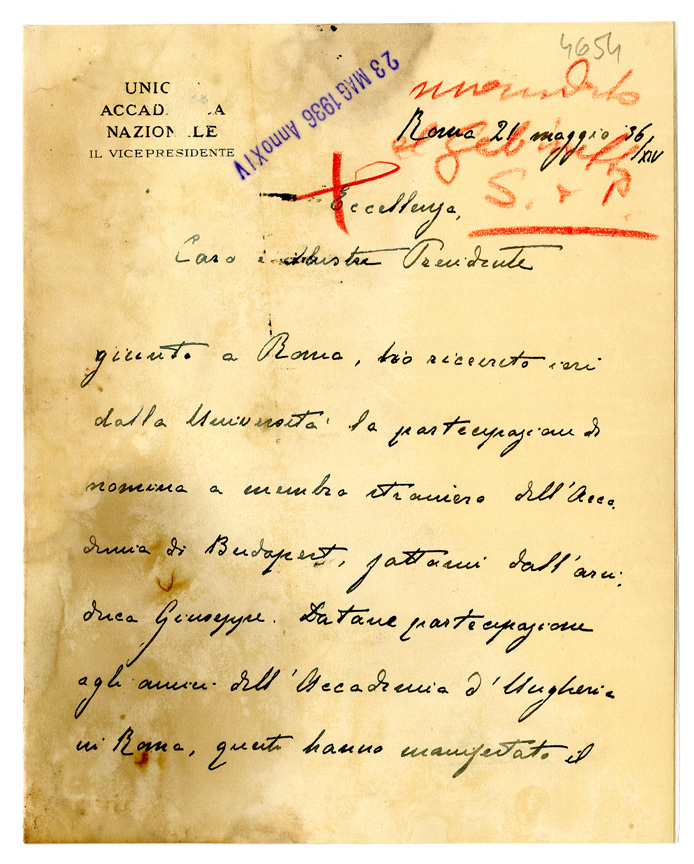 4654
UNIO
ACCAD A
NAZION LE
IL VICEPRESIDENTE
23 MAG 1936 Anno XIV
Roma 21 maggio 36/XIV
S. + P.
Eccellenza,
Caro e illustre Presidente
giunto a Roma, ho ricevuto ieri
dalla Università la partecipazione di
nomina a membro straniero dell'Acca,
demia di Budapest, fattami dall'arci,
duca Giuseppe. Datane partecipazione
agli amici dell'Accademia d'Ungheria
in Roma, questi hanno manifestato il